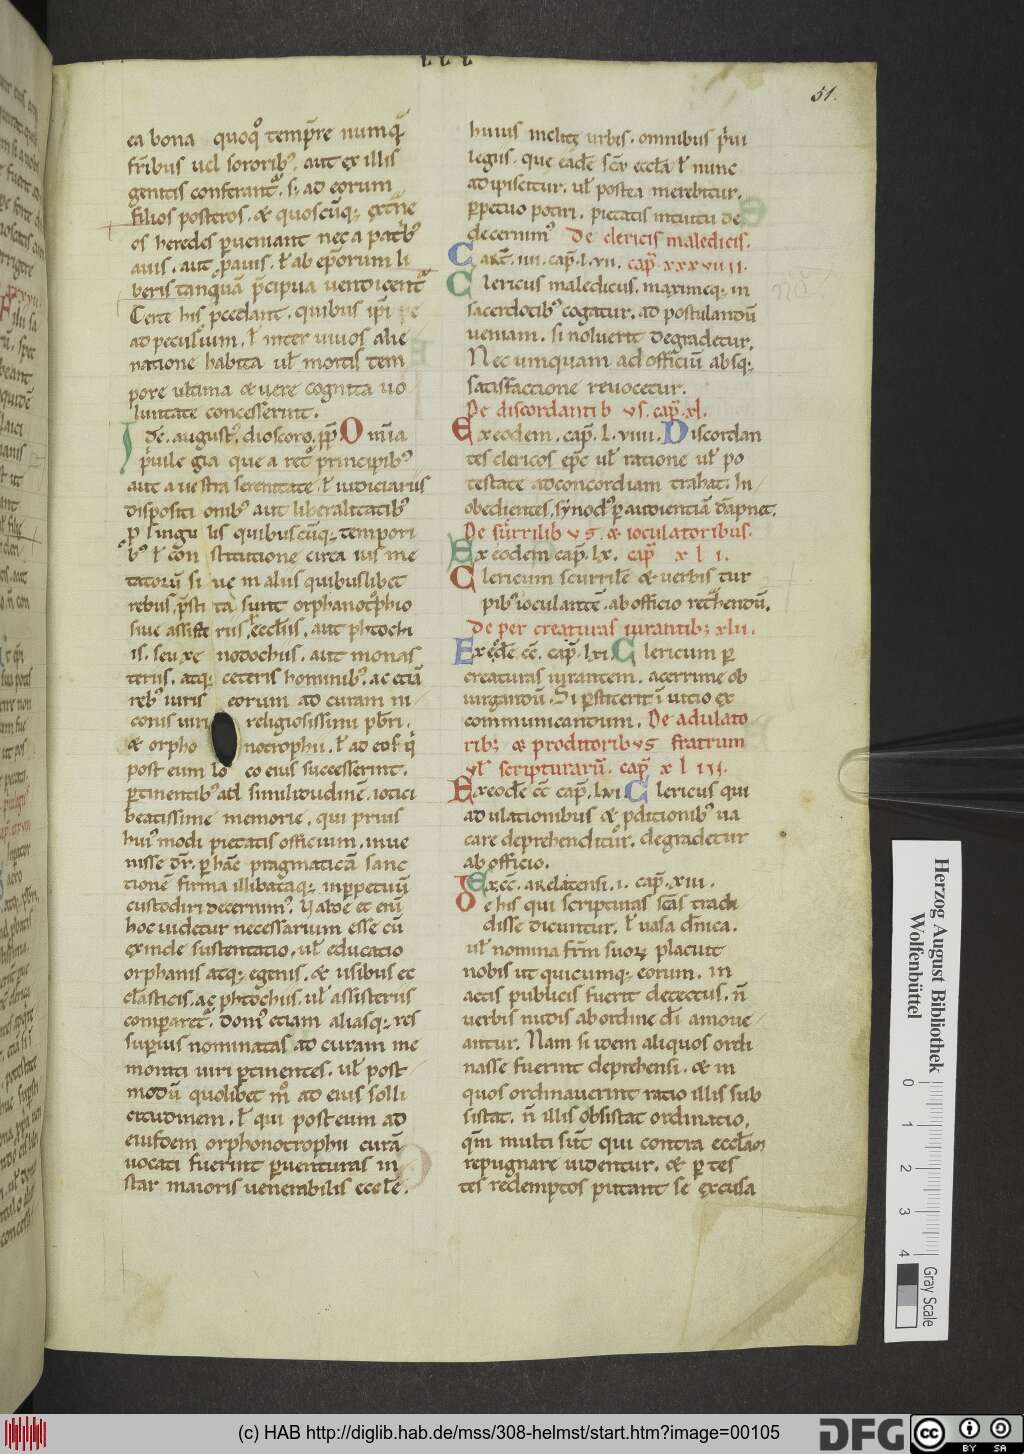 51.
ea bona quoqͦ temp̄re numq̄
fr̄ibus uel sororib᾽. aut ex illis
genitis conferant᷑. si ad eorum
filios posteros. & quoscūq; ext̄ne
os heredes ꝑueniant nec a patb᾽
auis. aut ꝓauis. ł ab ep̄orum li
beris tanquā p̄cipua uendicent᷑
Certe his p̄cedant. quibus ip̄i
ad peculium. ł inter uiuos alie
natione habita uł mortis tem
pore ultima & uere cognita uo
luntate concesserint.
Idē. august᾽. dioscoro. pp̄ Om̄ia
priuilegia que a ret͂ principib᾽
aut a uestra serenitate. ł iudiciarus
dispositionib᾽ aut liberalitatib᾽
ꝓ singulis quibuscūq; tempori
b᾽ ł cōnstitutione circa ius me
tatorū siue in aliis quibuslibet
rebus. p̄stita sunt orphanotrphio
siue assisteriis. eccl̄iis. aut phtochi
is. seu xenodochus. aut monas
teriis. atq; ceteris hominib᾽. ac etiā
reb᾽ iuris eorum ad curam in
conis uiri religiosissimi pbr̄i.
& orphonotrophii. ł ad eos q̄
post eum loco eius successerint.
ꝑtinentib᾽ ad similitudinē. iotici
beatissime memorie. qui prius
hui᾽ modi pietatis officium. inue
nisse dr̄. ꝑ hāc pragmaticā sanc
tionē firma illibataq; inꝑpetuū
custodiri decernim᾽.
hoc uidetur necessarium esse cū
exinde sustentatio. uł educatio
orphanis atq; egenis. & usibus ec
cl̄asticis. ac phtochus. uł assisteriis
comparet᷑. Dom᾽ etiam aliasq; res
superius nominatas ad curam me
morati uiri ꝑtinentes. uł post
modū quolibet m͞o ad eius solli
citudinem. ł qui post eum ad
eiusdem orphonotrophii curā
uocati fuerint ꝑuenturas in
star maioris uenerabilis ecclē.
huius melite urbis. omnibus p̄iui
legiis. que eadē sc̄a eccl̄a ł nunc
adipiscitur. uł postea merebitur.
ꝑpetuo potiri. pietatis intuitu de
decernim᾽ De clericis maledicis.
Cart̄. iiii. cap̄. l. vii. cap̄ xxxviiii.
Clericus maledicus. maximeq; in
sacerdotib᾽ cogatur. ad postulandū
ueniam. si noluerit degradetur.
Nec umquam ad officiū absq;
satisfactione reuocetur.
De discordantib us. cap̄. xl.
Ex eodem. cap̄. l. viiii. Discordan
tes clericos ep̄c uł ratione uł po
testate ad concordiam trahat. In
obedientes. synod᾽ ꝑ autoientiā dāpnet.
De surrilib us. & ioculatoribus.
Ex eodem cap̄. lx. cap̄ xli.
Clericum scurrilē & uerbis tur
pib᾽ ioculantē. ab officio ret͂hendū.
De per creaturas iurantib; xlii.
Ex eodē cc̄. cap̄. lxi. Clericum ꝑ
creaturas iurantem. acerrime ob
iurgandū. Si ꝑstiterit ī uitio ex
communicandum. De adulato
rib; & proditoribus fratrum
uł scripturarū. cap̄ xliii.
Ex eodē cc̄ cap̄. lxi. Clericus qui
adulationibus & ꝓditionib᾽ ua
care deprehenditur. degradetur
ab officio.
Ex cc̄. arelatensi. i. cap̄. xiii.
De his qui scripturas scās tradi
disse dicuntur. ł uasa dn̄ica.
uł nomina fr̄m suoꝝ placuit
nobis ut quicumq; eorum. in
actis publicis fuerit detectus. n̄
uerbis nudis ab ordine dī amoue
antur. Nam si idem aliquos ordi
nasse fuerint deprehensi. & in
quos ordinauerint ratio illis sub
sistat. n̄ illis obsistat ordinatio.
qm̄ multi sūt qui contra eccl̄am
repugnare uidentur. & ꝑ tes
tes redemptos putant se excusa
Herzog August Bibliothek
Wolfenbüttel
0 1 2 3 4
Gray Scale
(c) HAB http://diglib.hab.de/mss/308-helmst/start.htm?image=00105
DFG cc BY SA